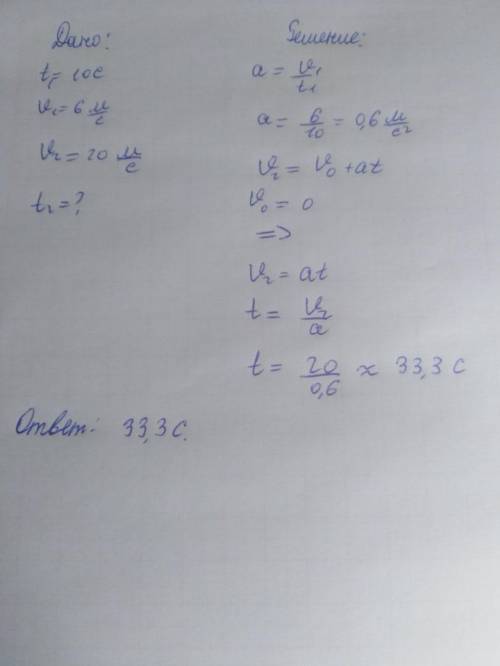 Дано:
t₁=10с
v₁=6 м/с
v₂=20 м/с
t₂=?
Решение:
a = v₁/t₁
a = 6/10 = 0,6 м/с²
v₂ = v₀ + at
v₀ = 0
=>
v₂ = at
t = v₂/a
t = 20/0,6 ≈ 33,3 с
Ответ: 33,3 с.